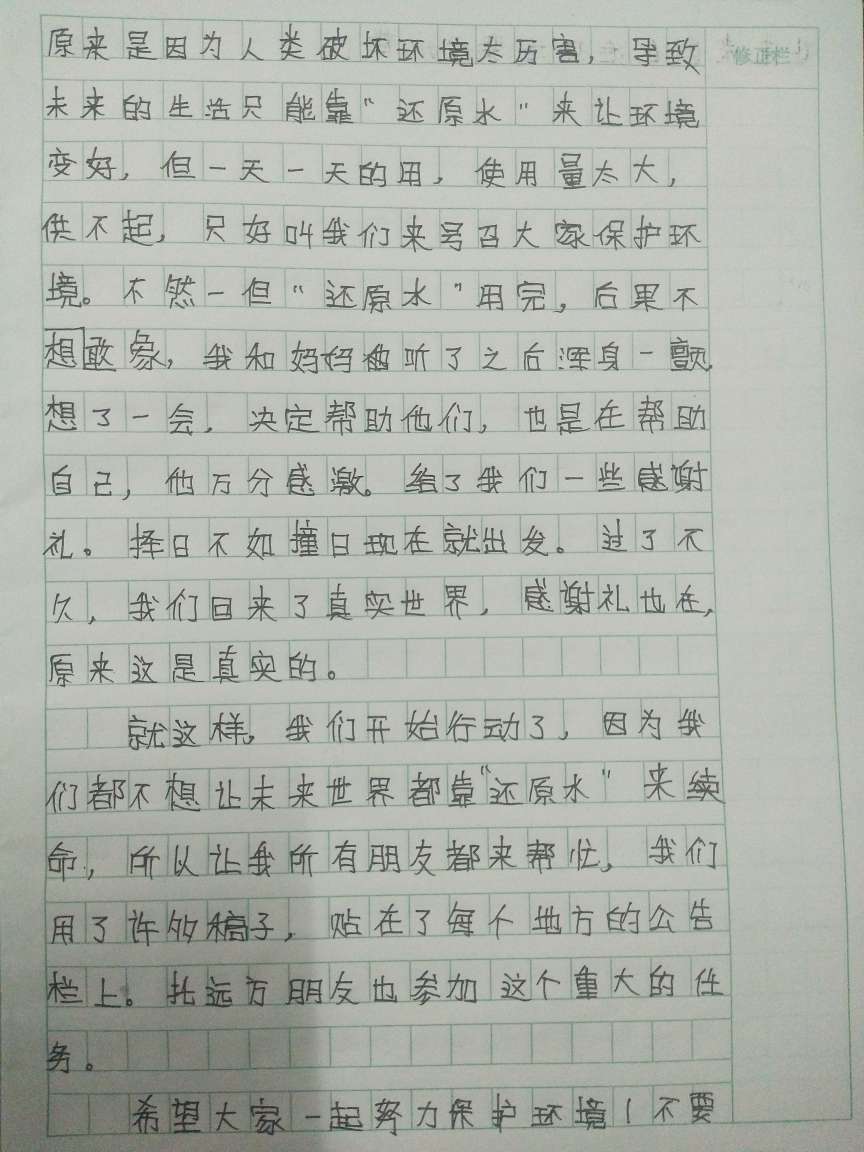 原来是因为人类破坏环境太厉害，导致
修正栏
未来的生活只能靠“还原水”来让环境
变好，但一天一天的用，使用量太大，
供不起，只好叫我们来号召大家保护环
境。不然一但“还原水”用完，后果不
想敢象，我和妈妈听了之后浑身一颤，
想了一会，决定帮助他们，也是在帮助
自己，他万分感激。给了我们一些感谢
礼。择日不如撞日现在就出发。过了不
久，我们回来了真实世界，感谢礼也在，
原来这是真实的。
就这样，我们开始行动了，因为我
们都不想让未来世界都靠“还原水”来续
命，所以让我所有朋友都来帮忙，我们
用了许多稿子，贴在了每个地方的公告
栏上。托远方朋友也参加这个重大的任
务。
希望大家一起努力保护环境！不要